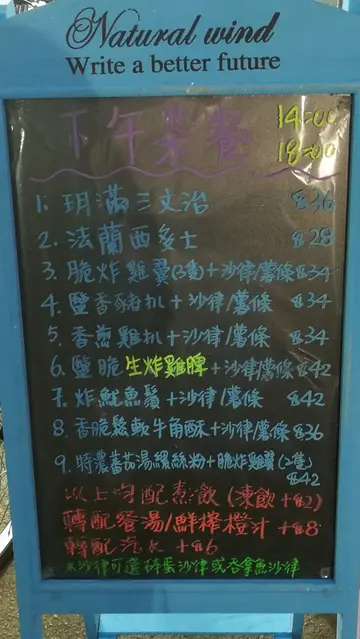 Natural wind
Write a better future
下午茶餐
14:00
18:00
1. 玥滿三文治 $36
2. 法蘭西多士 $28
3. 脆炸雞翼(3隻)+沙律/薯條 $34
4. 鹽香豬扒+沙律/薯條 $34
5. 香煎雞扒+沙律/薯條 $34
6. 鹽脆生炸雞脾+沙律/薯條 $42
7. 炸魷魚鬚+沙律/薯條 $42
8. 香脆鬆軟牛角酥+沙律/薯條 $36
9. 特濃蕃茄湯緩絲粉+脆炸雞翼(2隻)
$42
以上均配熱飲(凍飲+$2)
轉配餐湯/鮮榨橙汁+$8
轉配汽水+$6
*沙律可選碎蛋沙律或吞拿魚沙律